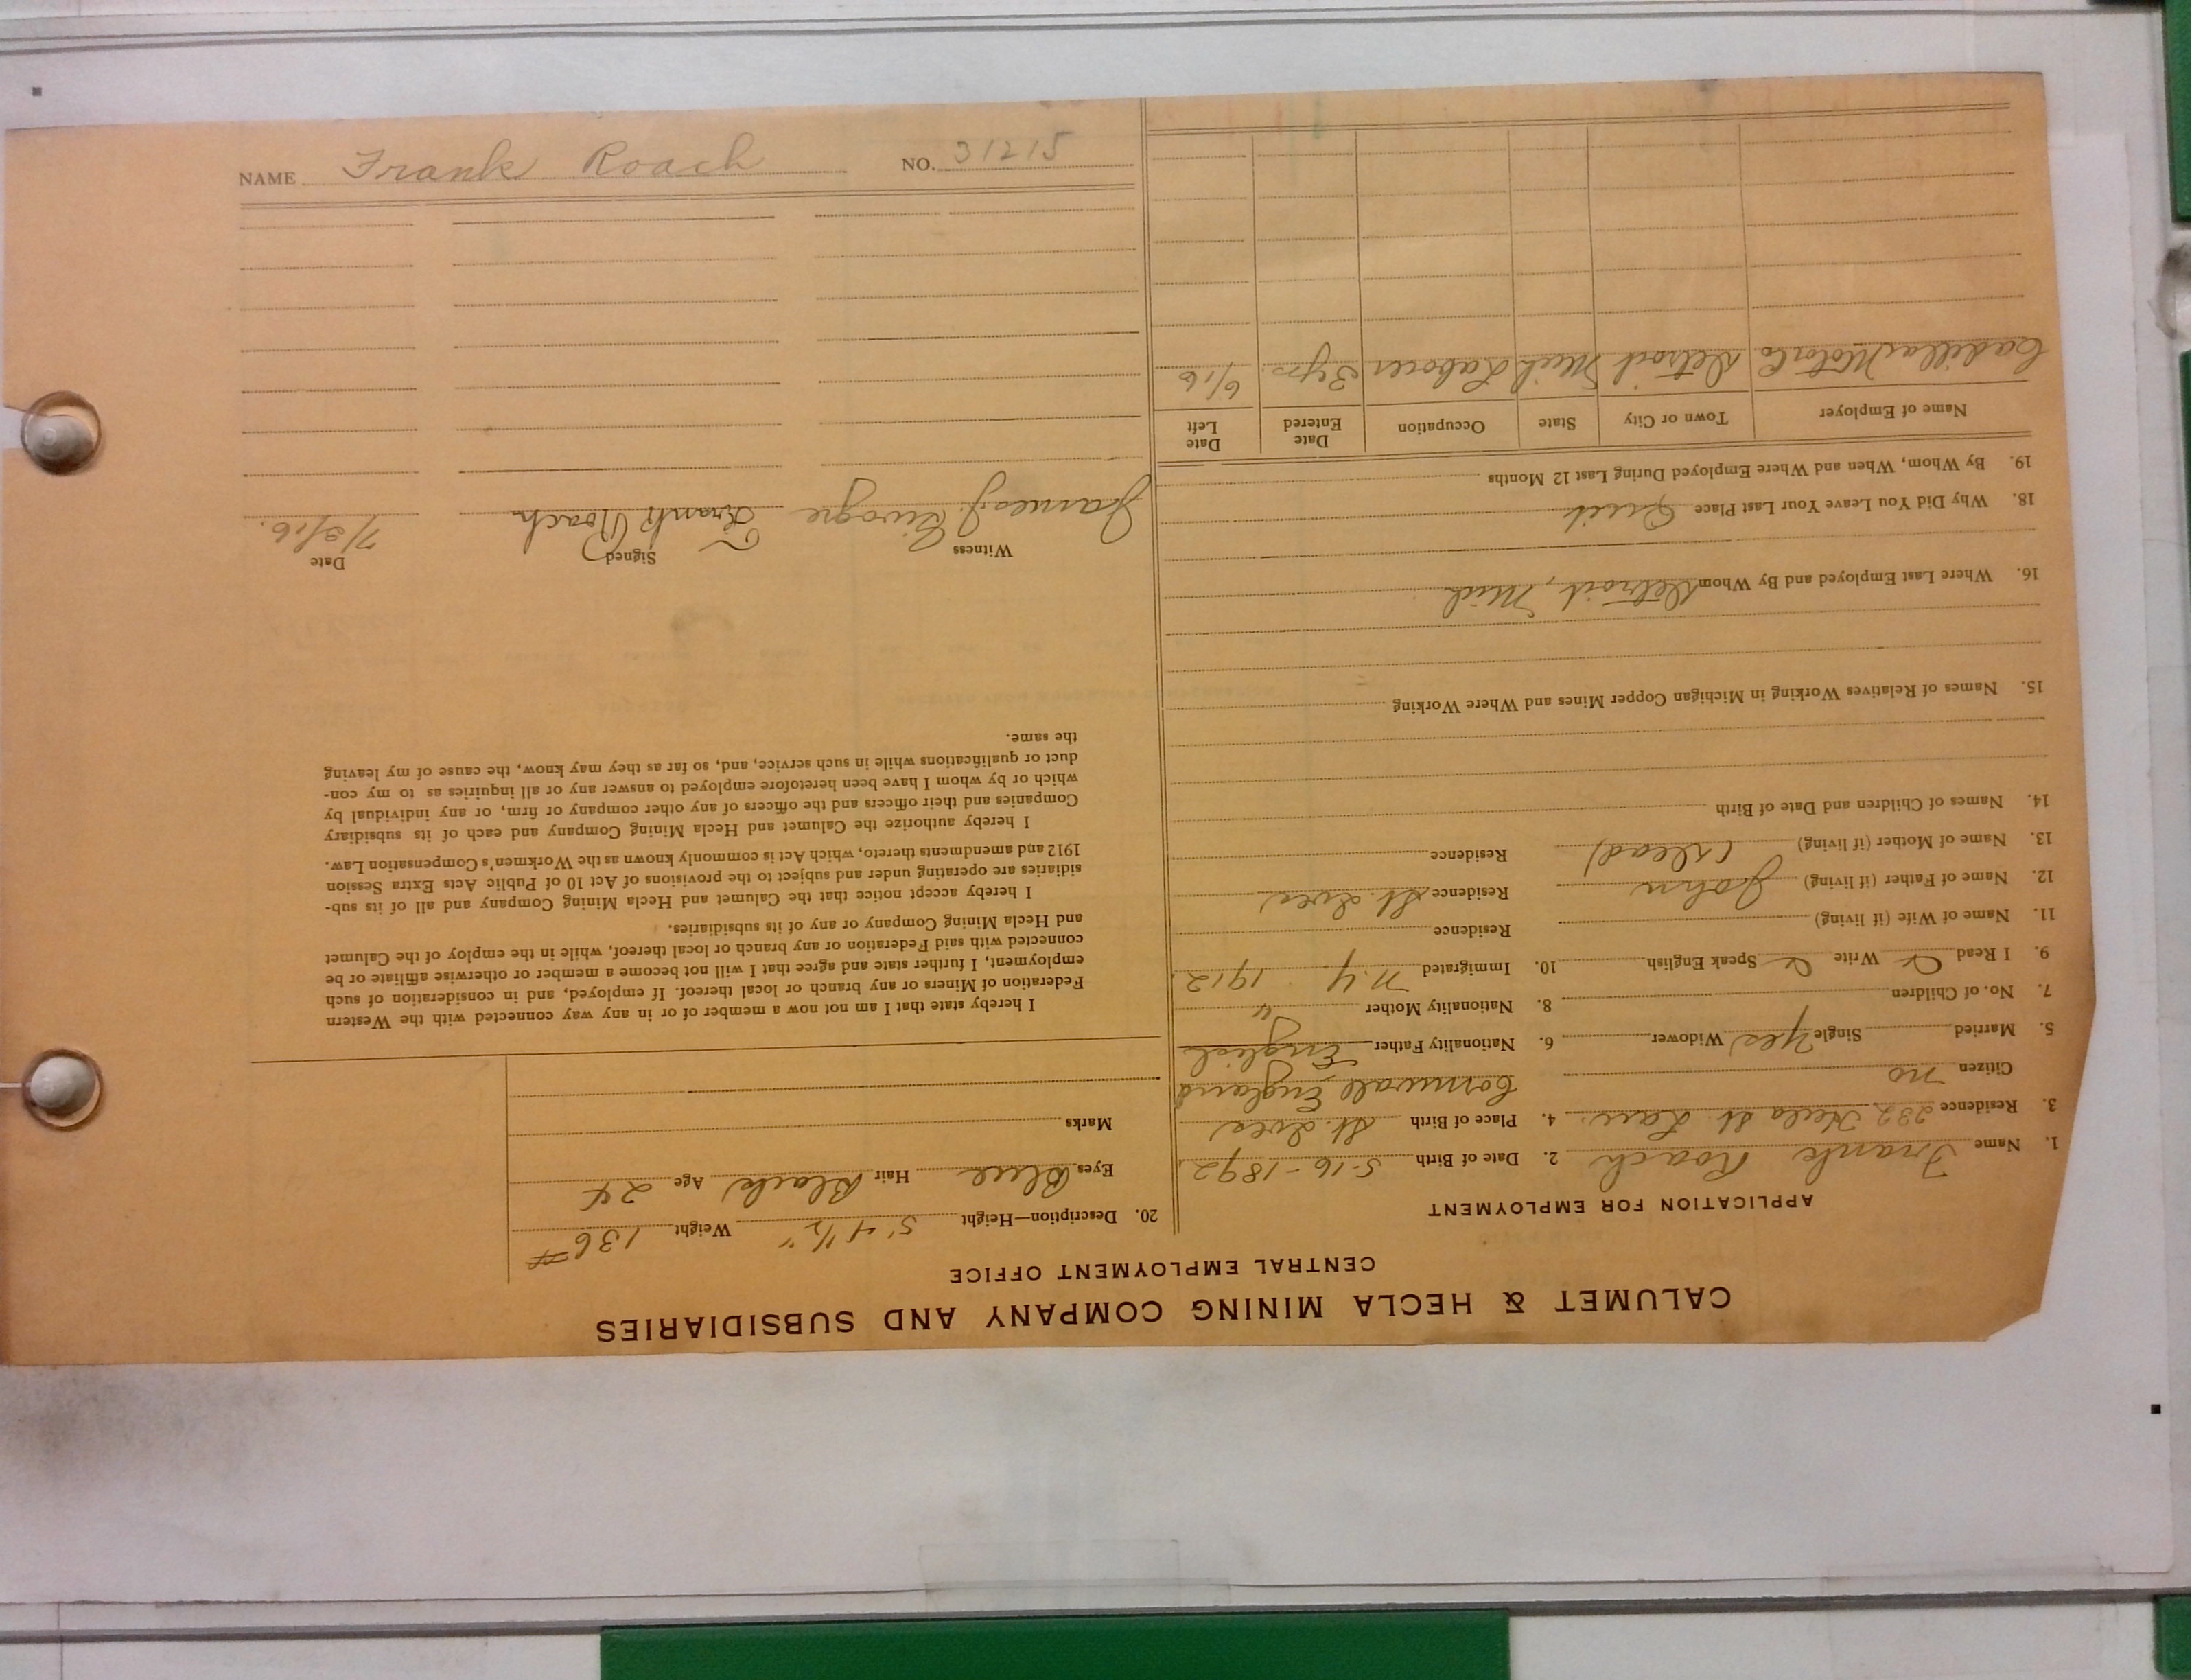 CALUMET & HECLA MINING COMPANY AND SUBSIDIARIES
CENTRAL EMPLOYMENT OFFICE
APPLICATION FOR EMPLOYMENT
1. Name Frank Roach 2. Date of Birth 5-16-1892
3. Residence 232 Hecla St Lau. 4. Place of Birth St. Ives
Citizen no Cornwall England
5. Married Single Yes Widower 6. Nationality Father English
7. No. of Children 8. Nationality Mother "
9. I Read Write Speak English 10. Immigrated N.Y. 1912
11. Name of Wife (if living) Residence
12. Name of Father (if living) John Residence St. Ives
13. Name of Mother (if living) (dead) Residence
14. Names of Children and Date of Birth
15. Names of Relatives Working in Michigan Copper Mines and Where Working
16. Where Last Employed and By Whom Detroit, Mich
18. Why Did You Leave Your Last Place Quit
19. By Whom, When and Where Employed During Last 12 Months
Name of Employer Town or City State Occupation Date Entered Date Left
Cadillac Motor Co Detroit Mich Laborer 3 yrs 6/16
20. Description—Height 5' 4 1/2" Weight 136 #
Eyes Blue Hair Black Age 24
Marks
I hereby state that I am not now a member of or in any way connected with the Western
Federation of Miners or any branch or local thereof. If employed, and in consideration of such
employment, I further state and agree that I will not become a member or otherwise affiliate or be
connected with said Federation or any branch or local thereof, while in the employ of the Calumet
and Hecla Mining Company or any of its subsidiaries.
I hereby accept notice that the Calumet and Hecla Mining Company and all of its sub-
sidiaries are operating under and subject to the provisions of Act 10 of Public Acts Extra Session
1912 and amendments thereto, which Act is commonly known as the Workmen's Compensation Law.
I hereby authorize the Calumet and Hecla Mining Company and each of its subsidiary
Companies and their officers and the officers of any other company or firm, or any individual by
which or by whom I have been heretofore employed to answer any or all inquiries as to my con-
duct or qualifications while in such service, and, so far as they may know, the cause of my leaving
the same.
Witness Signed Date
James J. Frank Roach 7/3/16.
NAME Frank Roach NO. 31215